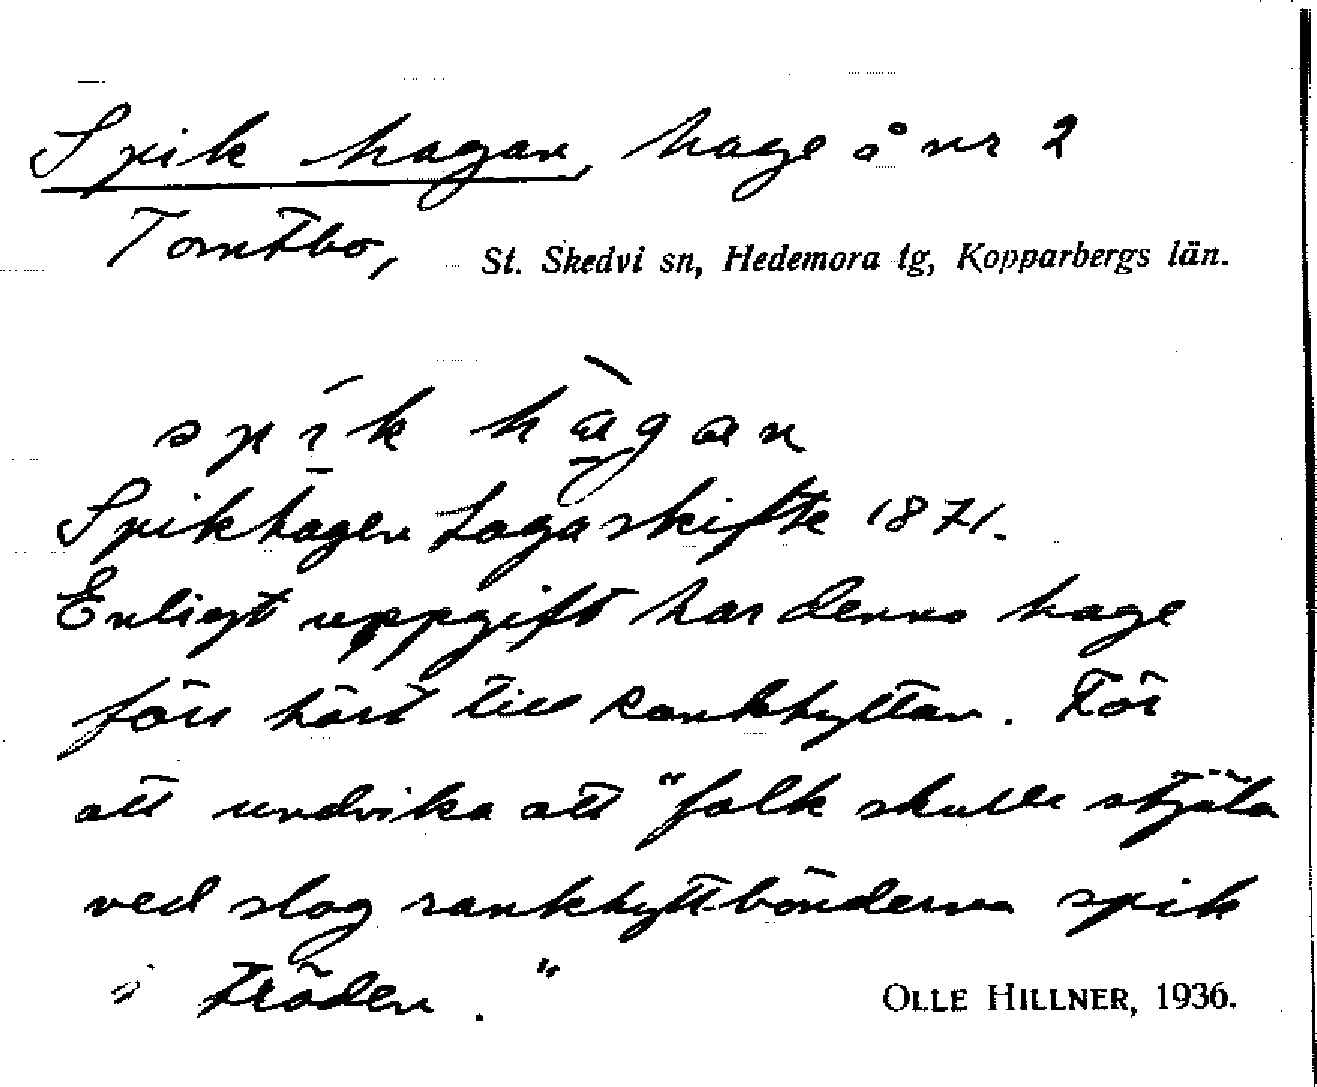 Spik hagan, hage å nr 2
Tomtbo, St. Skedvi sn, Hedemora tg, Kopparbergs län.
spík hàgan
Spikhagen Laga skifte 1871.
Enligt uppgift har denna hage
förr hört till Rankhyttan. För
att undvika att "folk skulle stjäla
ved slog rankhyttbönderna spik
i träden."
OLLE HILLNER, 1936.